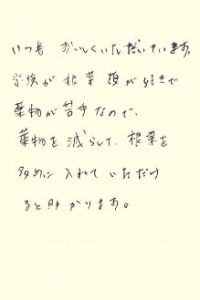 いつも おいしくいただいています。
家族が 根菜類が好きで
葉物が苦手なので、
葉物を減らして、根菜を
多めに 入れていただけ
ると助かります。